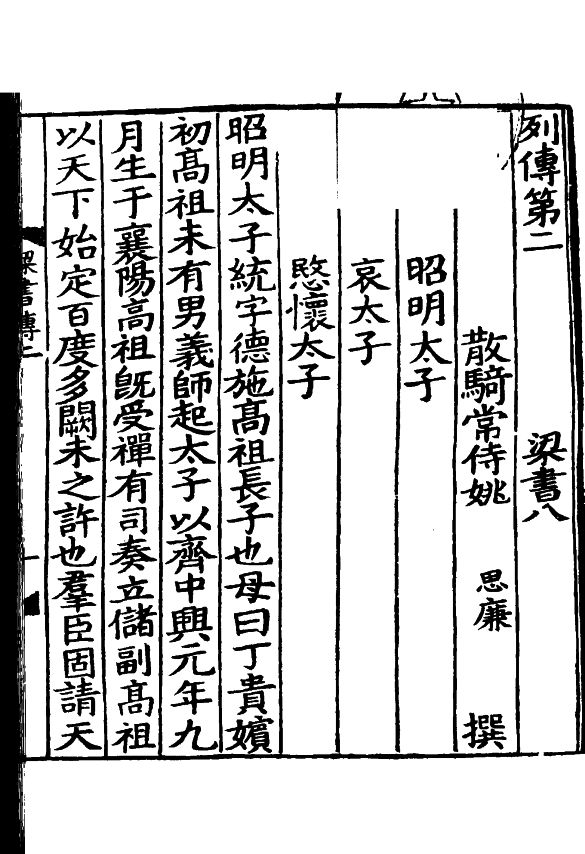 列傳第二 梁書八
散騎常侍姚 思廉 撰
昭明太子
哀太子
愍懷太子
昭明太子統字德施髙祖長子也母曰丁貴嬪
初髙祖未有男義師起太子以齊中興元年九
月生于襄陽高祖旣受禪有司奏立儲副髙祖
以天下始定百度多闕未之許也羣臣固請天
梁書傳二 一